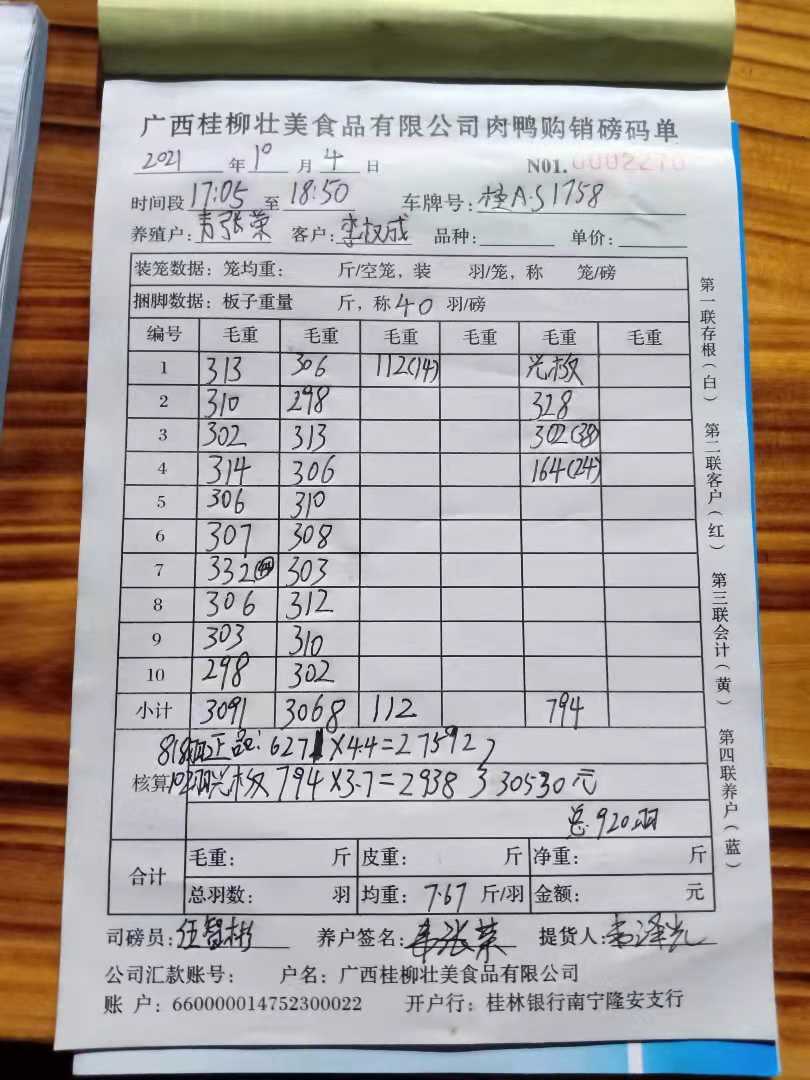 广西桂柳壮美食品有限公司肉鸭购销磅码单
2021 年 10 月 4 日 N01. 0002270
时间段 17:05 至 18:50 车牌号: 桂A·S1758
养殖户: 张荣 客户: 李权成 品种: 单价:
装笼数据: 笼均重: 斤/空笼, 装 羽/笼, 称 笼/磅
捆脚数据: 板子重量 斤, 称 40 羽/磅
编号 毛重 毛重 毛重 毛重 毛重 毛重
1 313 306 112(14)
2 310 298 328
3 302 313 302(38)
4 314 306 164(24)
5 306 310
6 307 308
7 332 303
8 306 312
9 303 310
10 298 302
小计 3091 3068 112 794
818羽正品: 6271×4.4=27592
核算 102羽 794×3.7=2938 30530元
总 920羽
合计 毛重: 斤 皮重: 斤 净重: 斤
总羽数: 羽 均重: 7.67 斤/羽 金额: 元
司磅员: 伍智彬 养户签名: 张荣 提货人:
公司汇款账号: 户名: 广西桂柳壮美食品有限公司
账 户: 660000014752300022 开户行: 桂林银行南宁隆安支行
第一联存根(白) 第二联客户(红) 第三联会计(黄) 第四联养户(蓝)